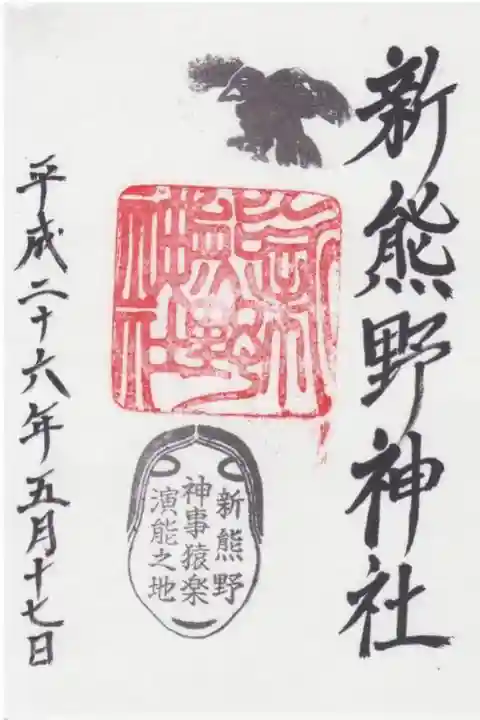 新熊野神社
新熊野
神事猿楽
演能之地
平成二十六年五月十七日